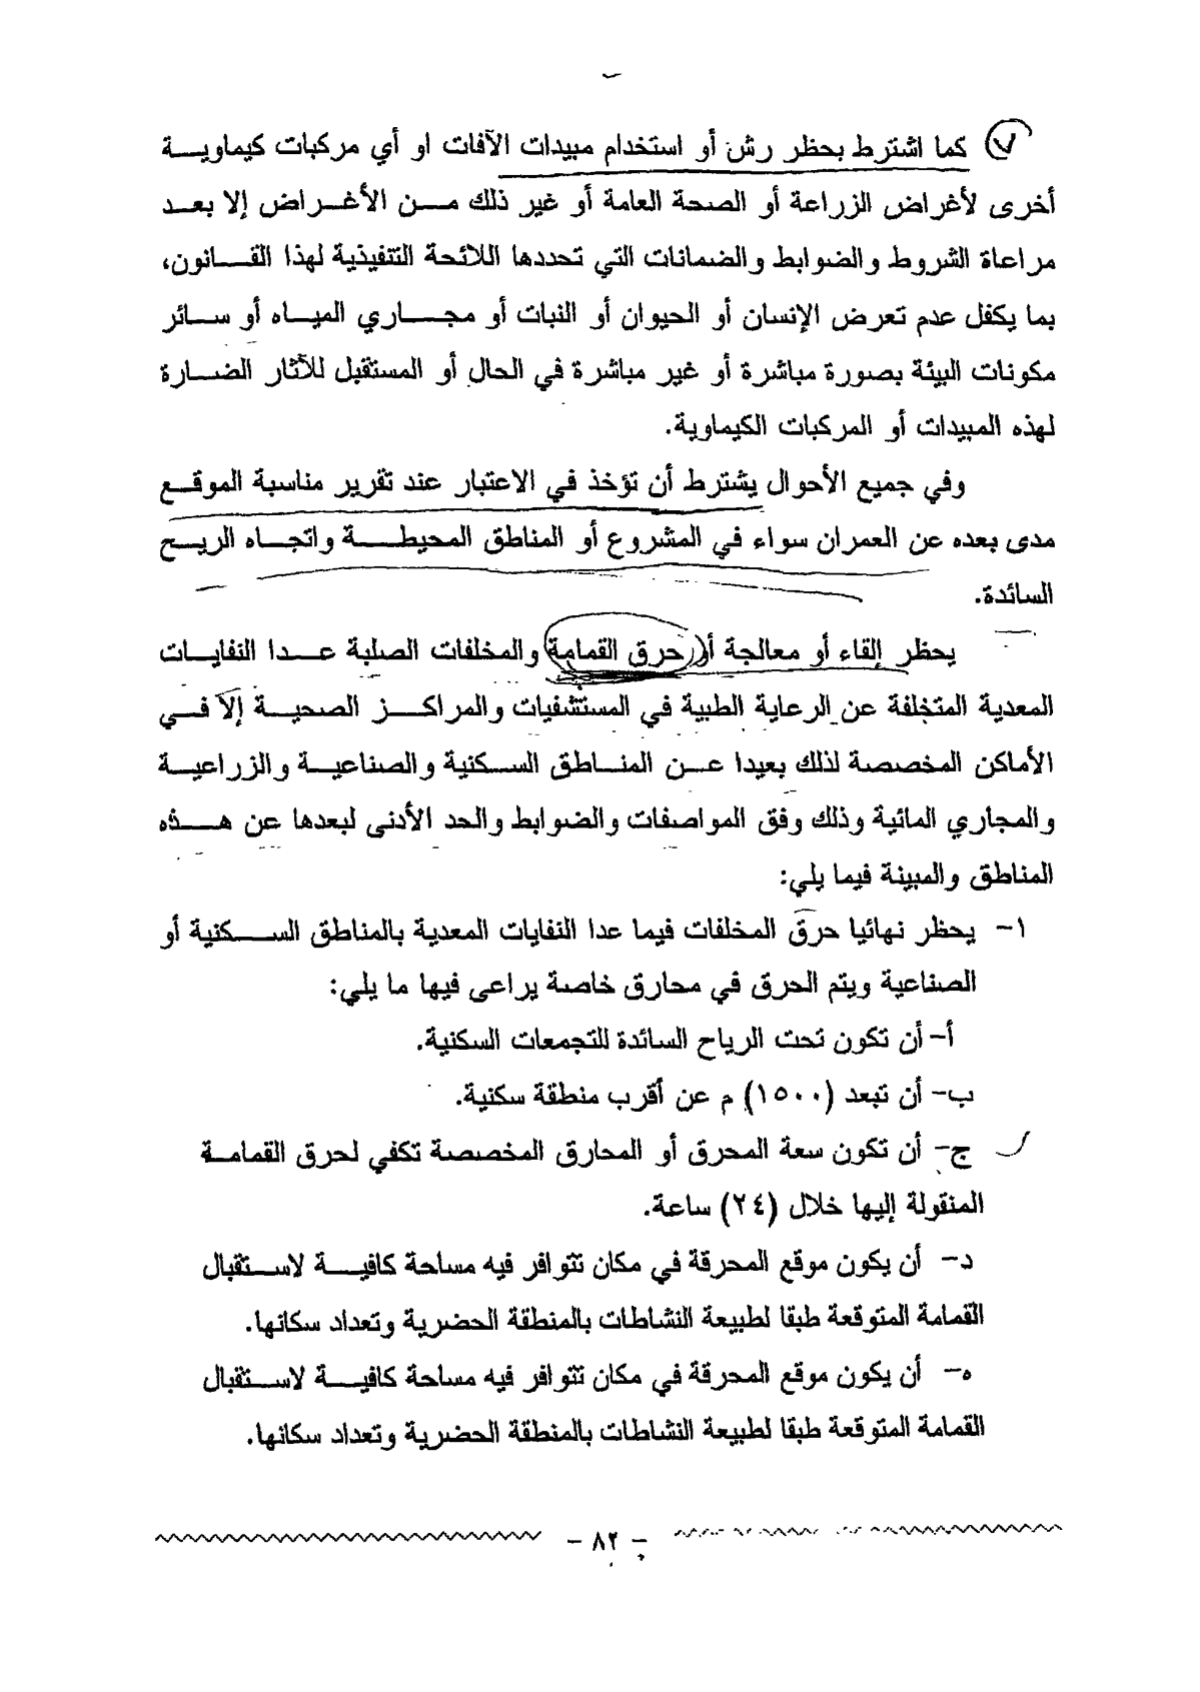 ٧ كما اشترط بحظر رش أو استخدام مبيدات الآفات او أي مركبات كيماوية
أخرى لأغراض الزراعة أو الصحة العامة أو غير ذلك من الأغراض إلا بعد
مراعاة الشروط والضوابط والضمانات التي تحددها اللائحة التنفيذية لهذا القانون،
بما يكفل عدم تعرض الإنسان أو الحيوان أو النبات أو مجاري المياه أو سائر
مكونات البيئة بصورة مباشرة أو غير مباشرة في الحال أو المستقبل للآثار الضارة
لهذه المبيدات أو المركبات الكيماوية.
وفي جميع الأحوال يشترط أن تؤخذ في الاعتبار عند تقرير مناسبة الموقع
مدى بعده عن العمران سواء في المشروع أو المناطق المحيطة واتجاه الريح
السائدة.
يحظر إلقاء أو معالجة أو حرق القمامة والمخلفات الصلبة عدا النفايات
المعدية المتخلفة عن الرعاية الطبية في المستشفيات والمراكز الصحية إلا في
الأماكن المخصصة لذلك بعيدا عن المناطق السكنية والصناعية والزراعية
والمجاري المائية وذلك وفق المواصفات والضوابط والحد الأدنى لبعدها عن هذه
المناطق والمبينة فيما يلي:
١- يحظر نهائيا حرق المخلفات فيما عدا النفايات المعدية بالمناطق السكنية أو
الصناعية ويتم الحرق في محارق خاصة يراعى فيها ما يلي:
أ- أن تكون تحت الرياح السائدة للتجمعات السكنية.
ب- أن تبعد (١٥٠٠) م عن أقرب منطقة سكنية.
ج- أن تكون سعة المحرق أو المحارق المخصصة تكفي لحرق القمامة
المنقولة إليها خلال (٢٤) ساعة.
د- أن يكون موقع المحرقة في مكان تتوافر فيه مساحة كافية لاستقبال
القمامة المتوقعة طبقا لطبيعة النشاطات بالمنطقة الحضرية وتعداد سكانها.
ه- أن يكون موقع المحرقة في مكان تتوافر فيه مساحة كافية لاستقبال
القمامة المتوقعة طبقا لطبيعة النشاطات بالمنطقة الحضرية وتعداد سكانها.
- ٨٢ -